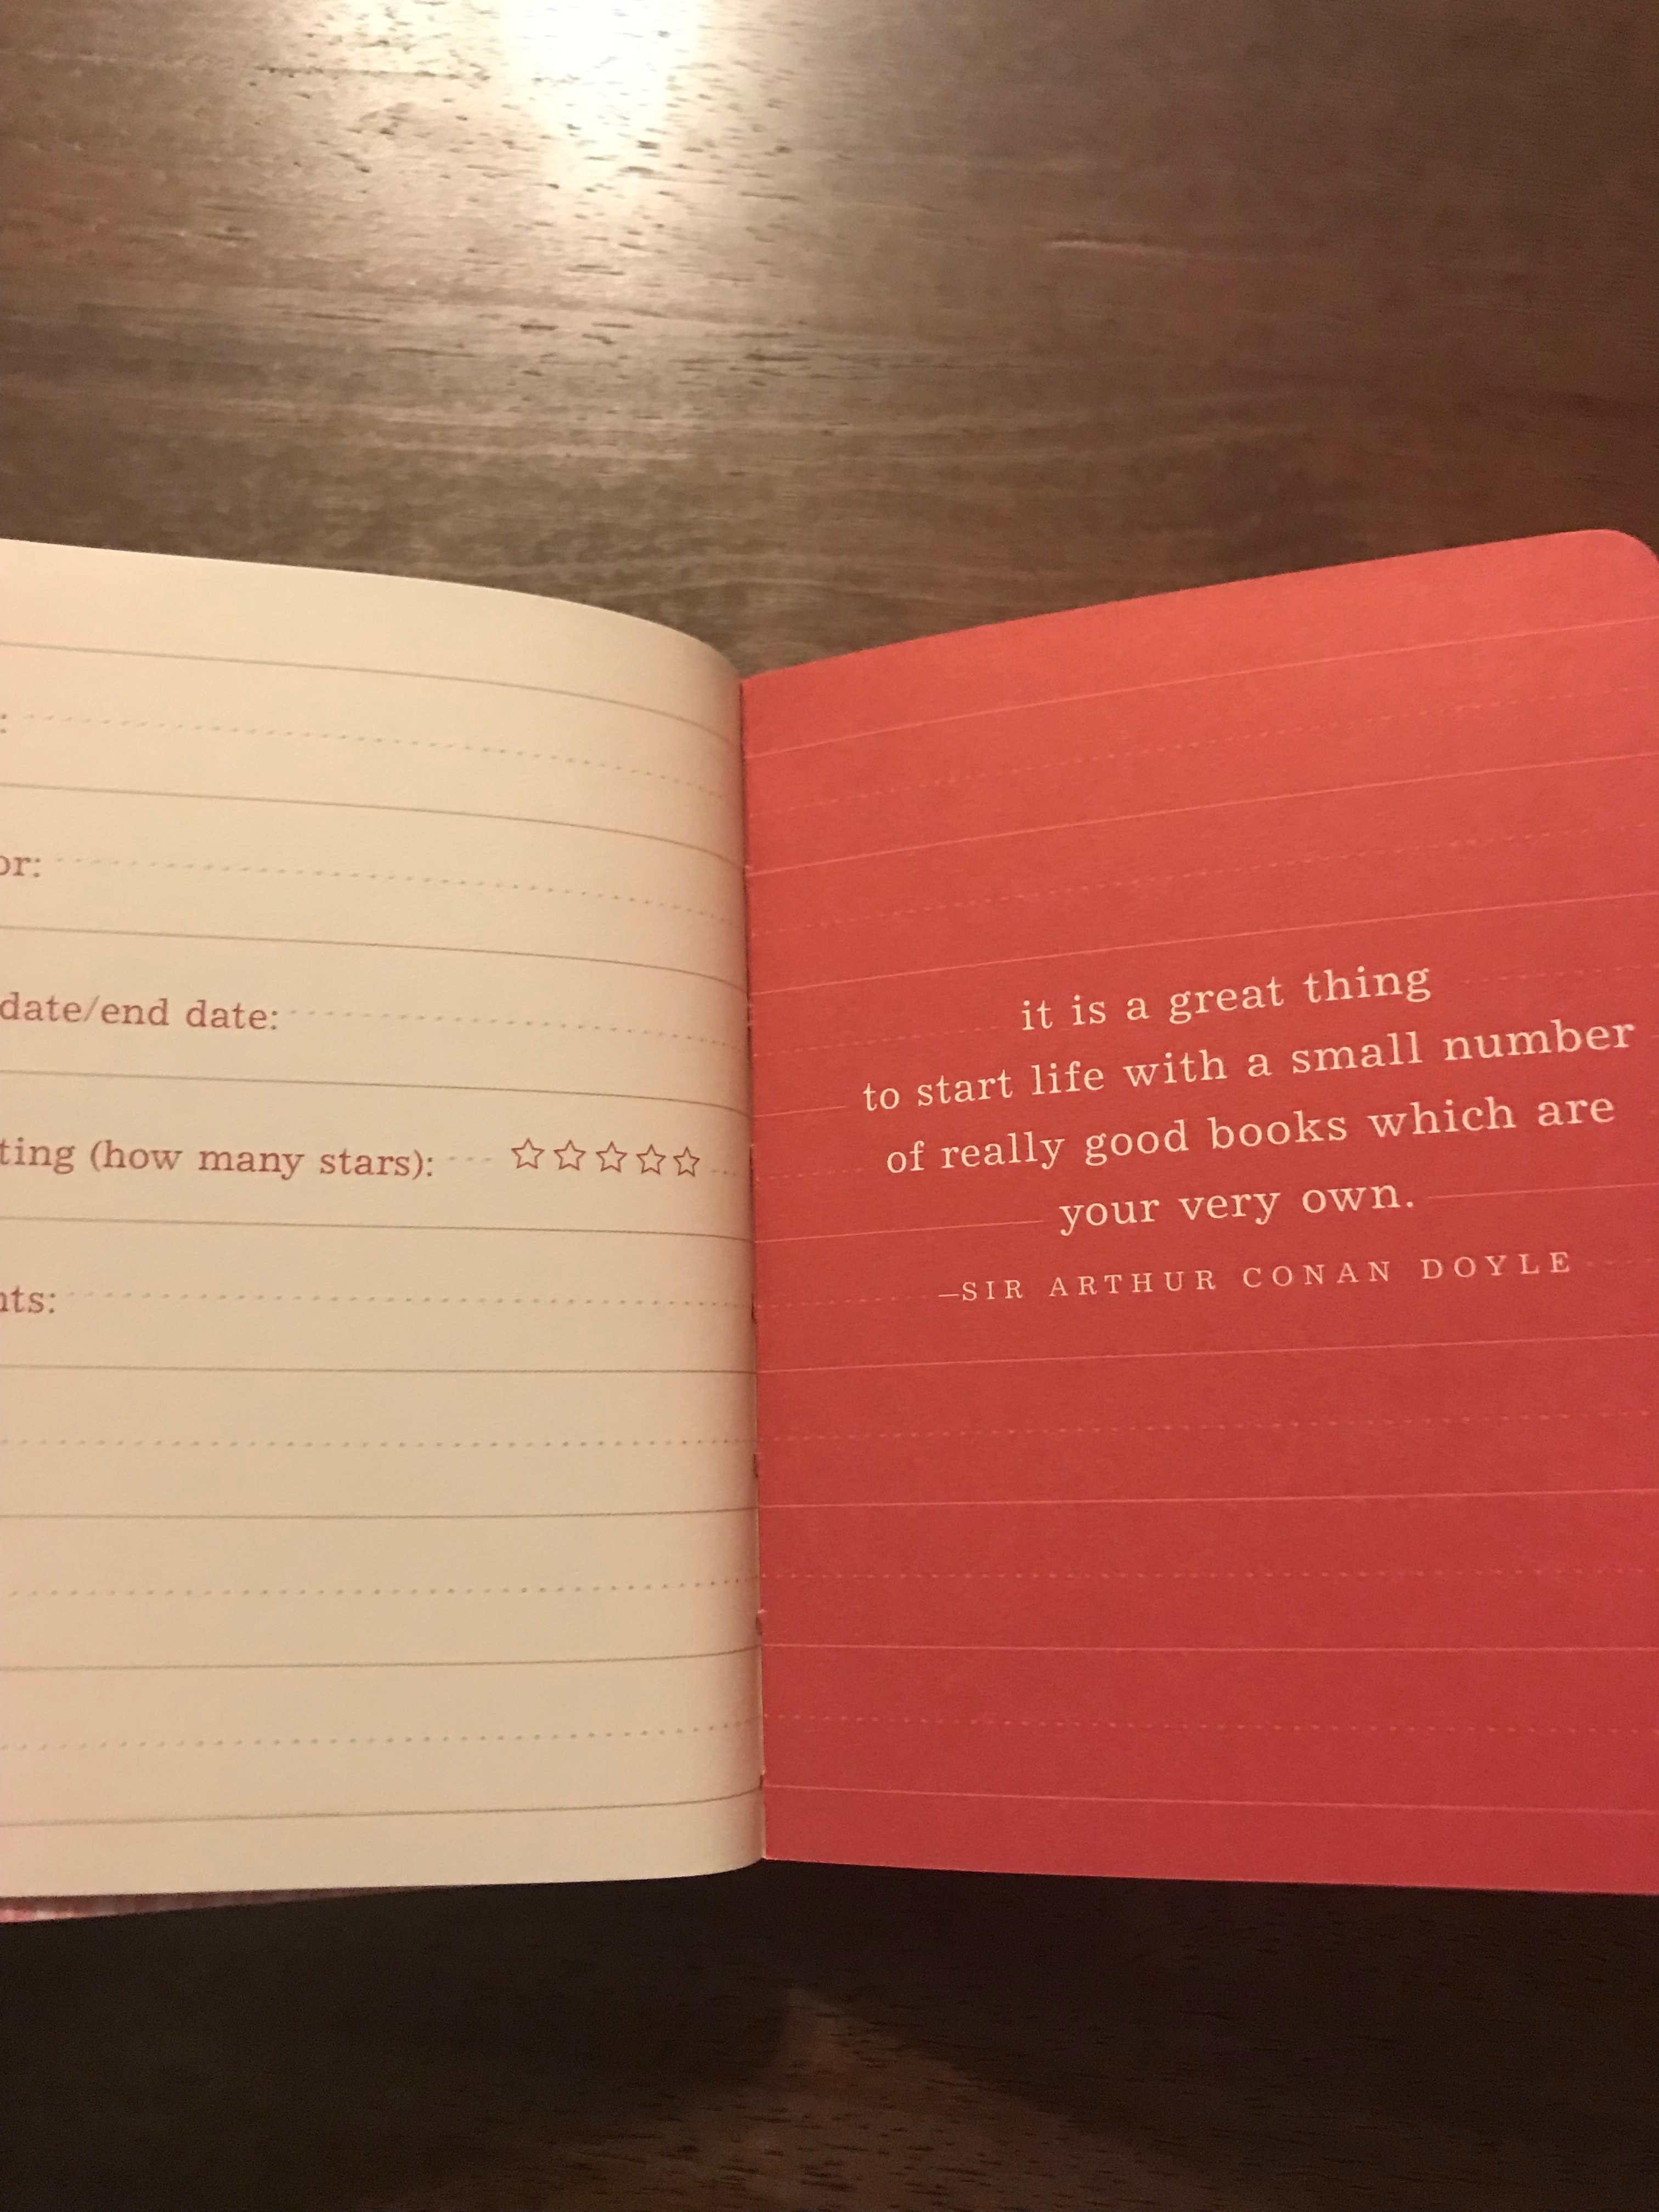 date/end date:
(how many stars):
it is a great thing
to start life with a small number
of really good books which are
your very own.
—SIR ARTHUR CONAN DOYLE